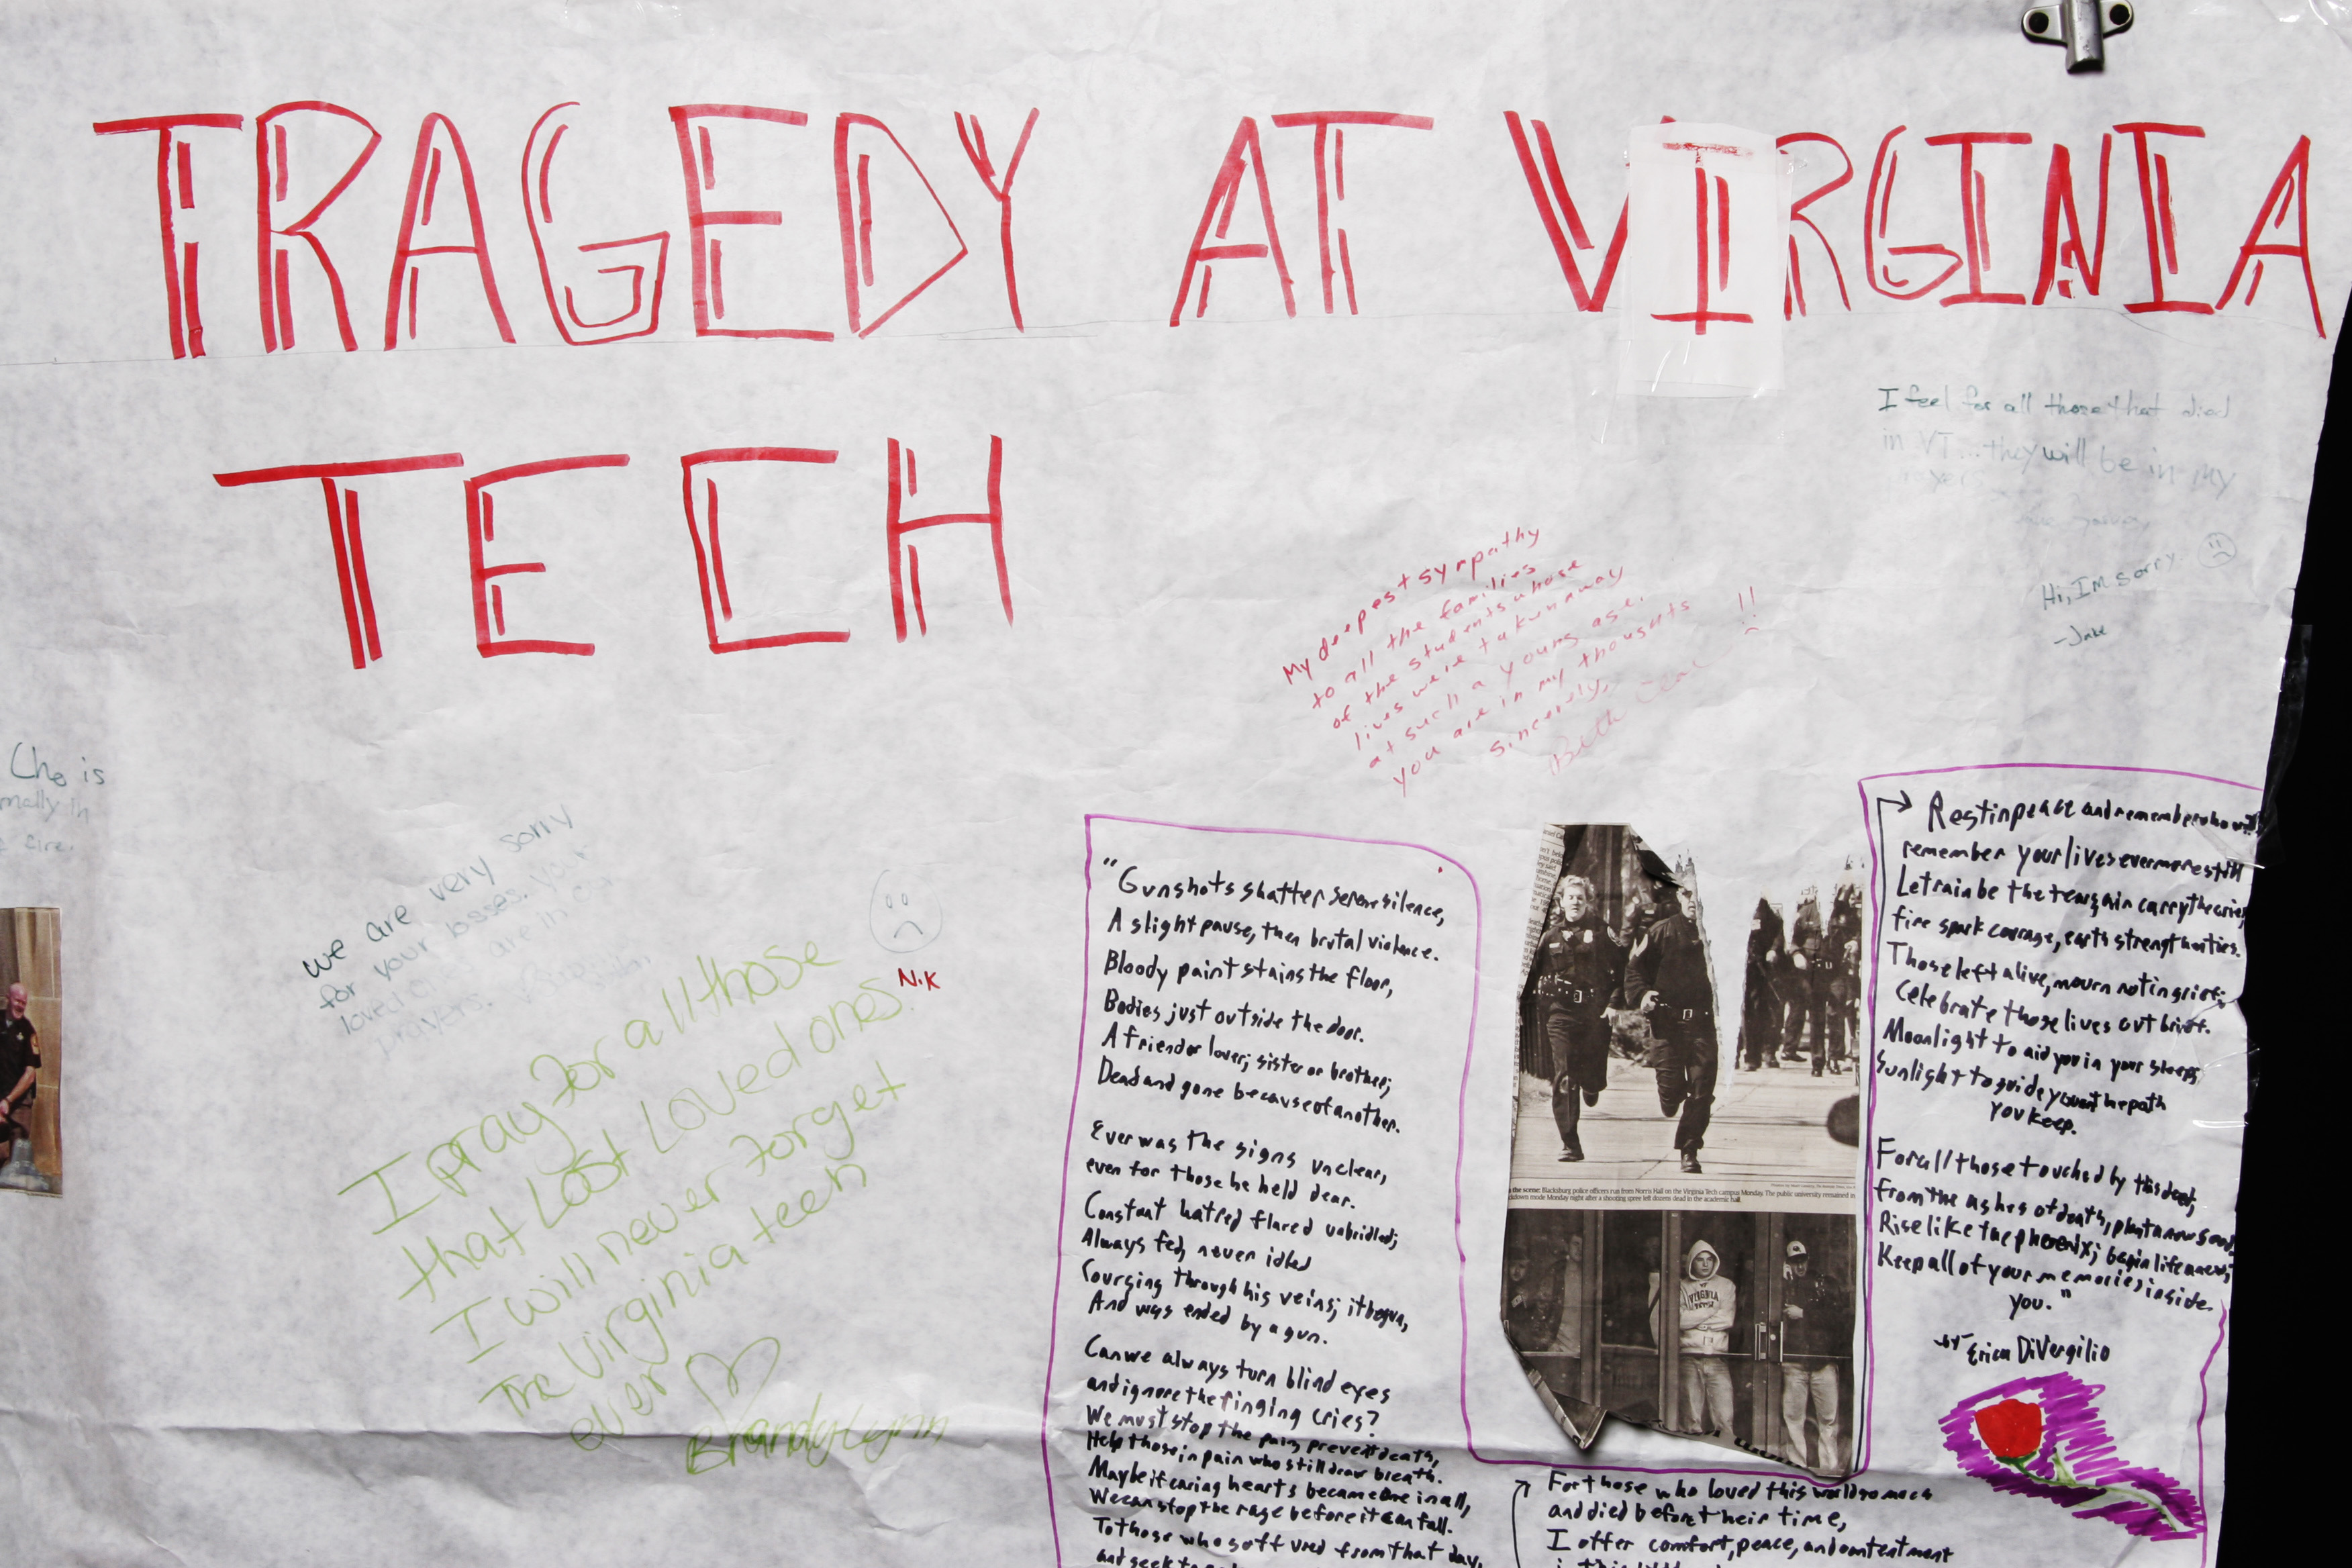 TRAGEDY AT VIRGINIA
TECH
I feel for all those that died
in VT... they will be in my
prayers
Hi, I'm sorry.
-Jake
My deepest sympathy
to all the families
of the students whose
lives were taken away
at such a young age.
you are in my thoughts !!
sincerely,
Beth
Cho is
fire.
we are very sorry
for your losses. your
loved are in our
prayers.
N.K
I pray for all those
that Lost Loved ones.
I will never forget
The Virginia tech
ever
BrandyLynn
"Gunshots shatter serene silence,
A slight pause, then brutal violence.
Bloody paint stains the floor,
Bodies just outside the door.
A friend or lover; sister or brother;
Dead and gone because of another.
Ever was the signs unclear,
even for those he held dear.
Constant hatred flared unbridled;
Always fed, never idled
Courging through his veins; it begun,
And was ended by a gun.
Can we always turn blind eyes
and ignore the finging cries?
We must stop the pain, prevent death,
Help those in pain who still draw breath.
Maybe if caring hearts became one in all,
We can stop the rage before it can fall.
To those who suffured from that day,
and seek to
the scene: Blacksburg police officers run from Norris Hall on the Virginia Tech campus Monday. The public university remained in
kdown mode Monday night after a shooting spree left dozens dead in the academic hall.
VIRGINIA
TECH
For those who loved this world so much
and died before their time,
I offer comfort, peace, and contentment
in this
Rest in peace and remember who
remember your lives evermore still
Let rain be the tears, air carry the cries,
fire spark courage, earth strength unties.
Those left alive, mourn not in grief;
Celebrate those lives cut brief.
Moonlight to aid you in your sleep,
Sunlight to guide you on the path
you keep.
For all those touched by this deed,
from the ashes of death, plant a new seed,
Rise like the phoenix; begin life anew;
Keep all of your memories inside
you."
-by Erica DiVergilio